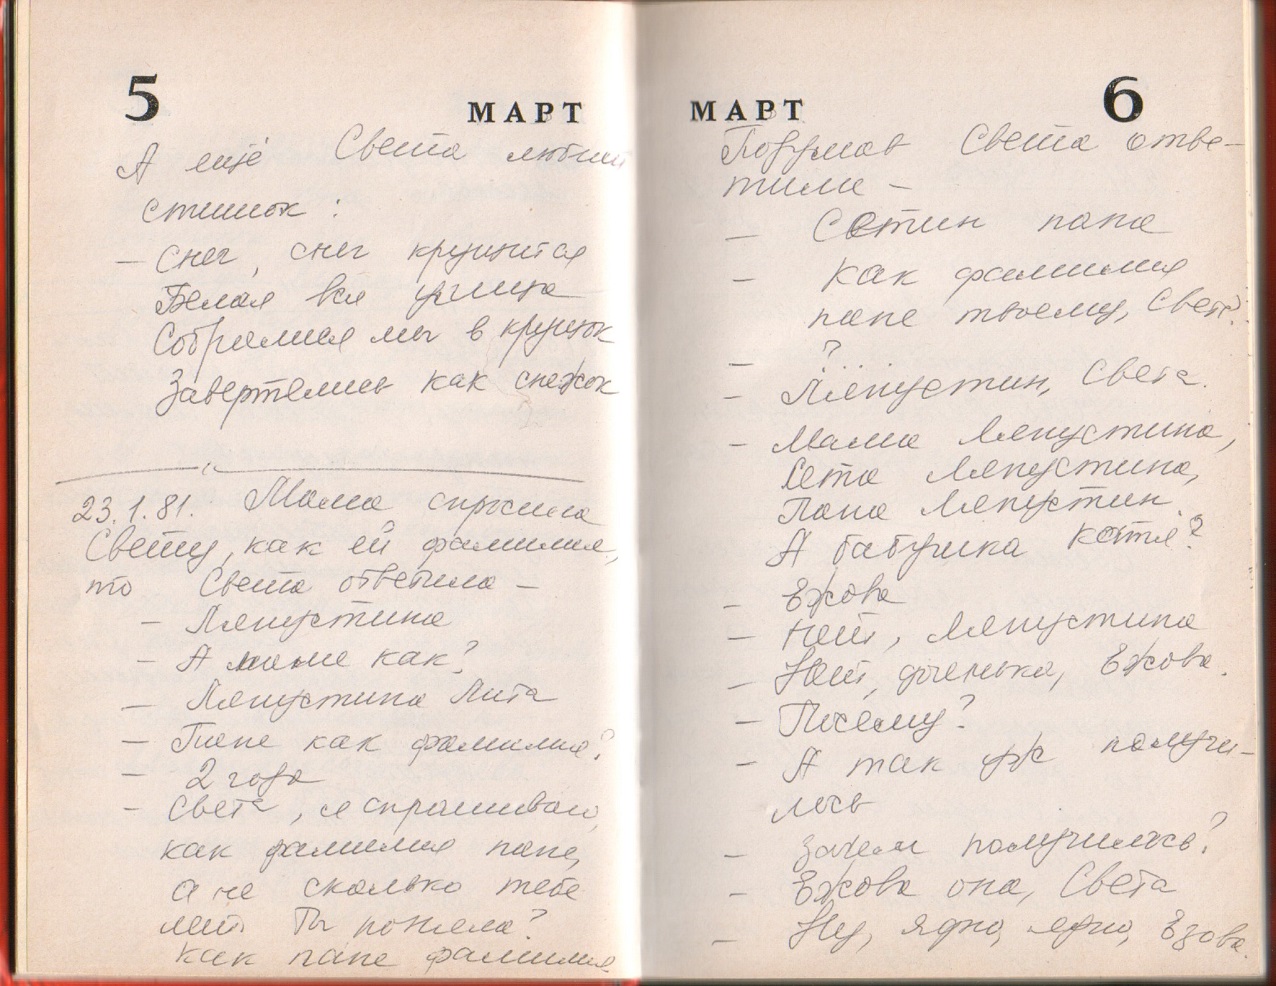 5
МАРТ
А ещё Света любит
стишок:
- Снег, снег кружится
Белая вся улица
Собралися мы в кружок
Завертелись как снежок
23.1.81. Мама спросила
Свету, как ей фамилия,
то Света ответила -
- Ляпустина
- А маме как?
- Ляпустина Лита
- Папе как фамилия?
- 2 года
- Света, я спрашиваю,
как фамилия папе,
а не сколько тебе
лет. Ты поняла?
Как папе фамилия
МАРТ
6
Подумав Света отве-
тила -
- Светин папа
- Как фамилия
папе твоему, Света?
- ?...
- Ляпустин, Света.
- Мама Ляпустина,
Света Ляпустина,
Папа Ляпустин.
А бабушка Катя?
- Ежова
- Нет, Ляпустина
- Нет, доченька, Ежова.
- Посему?
- А так уж получи-
лось
- Зачем получилось?
- Ежова она, Света
- Ну, ядно, ядно, Езова.